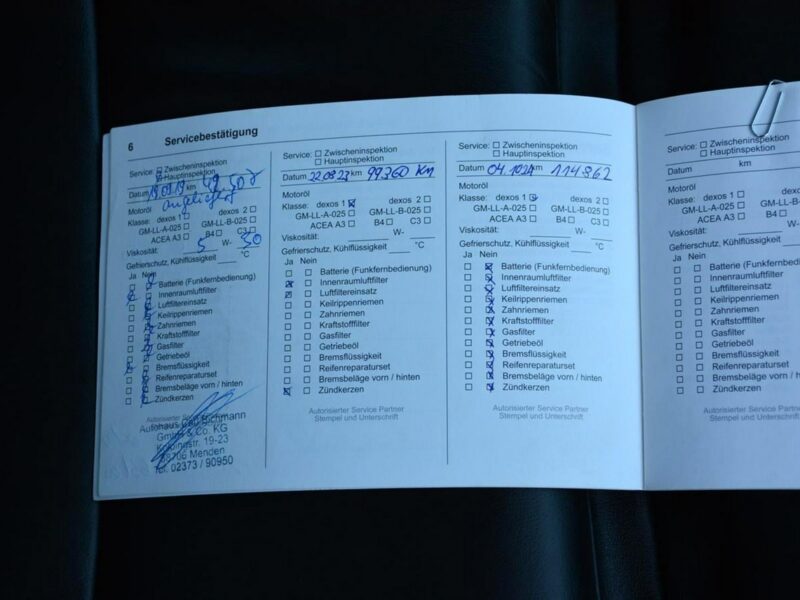 6 Servicebestätigung
Service: Zwischeninspektion
Hauptinspektion
Datum 19.09.19 km
Motoröl
Klasse: dexos 1 dexos 2
GM-LL-A-025 GM-LL-B-025
ACEA A3 B4 C3
Viskosität: 5 W- 30
Gefrierschutz, Kühlflüssigkeit °C
Ja Nein
Batterie (Funkfernbedienung)
Innenraumluftfilter
Luftfiltereinsatz
Keilrippenriemen
Zahnriemen
Kraftstofffilter
Gasfilter
Getriebeöl
Bremsflüssigkeit
Reifenreparaturset
Bremsbeläge vorn / hinten
Zündkerzen
Autorisierter Service Partner
Autohaus
GmbH & Co. KG
Kolpingstr. 19-23
58706 Menden
Tel. 02373 / 90950
Service: Zwischeninspektion
Hauptinspektion
Datum 22.09.23 km 99.360 km
Motoröl
Klasse: dexos 1 dexos 2
GM-LL-A-025 GM-LL-B-025
ACEA A3 B4 C3
Viskosität: W-
Gefrierschutz, Kühlflüssigkeit °C
Ja Nein
Batterie (Funkfernbedienung)
Innenraumluftfilter
Luftfiltereinsatz
Keilrippenriemen
Zahnriemen
Kraftstofffilter
Gasfilter
Getriebeöl
Bremsflüssigkeit
Reifenreparaturset
Bremsbeläge vorn / hinten
Zündkerzen
Autorisierter Service Partner
Stempel und Unterschrift
Service: Zwischeninspektion
Hauptinspektion
Datum 04.1024 km 114.862
Motoröl
Klasse: dexos 1 dexos 2
GM-LL-A-025 GM-LL-B-025
ACEA A3 B4 C3
Viskosität: W-
Gefrierschutz, Kühlflüssigkeit °C
Ja Nein
Batterie (Funkfernbedienung)
Innenraumluftfilter
Luftfiltereinsatz
Keilrippenriemen
Zahnriemen
Kraftstofffilter
Gasfilter
Getriebeöl
Bremsflüssigkeit
Reifenreparaturset
Bremsbeläge vorn / hinten
Zündkerzen
Autorisierter Service Partner
Stempel und Unterschrift
Service: Zwischeninspektion
Hauptinspektion
Datum km
Motoröl
Klasse: dexos 1
GM-LL-A-025
ACEA A3
Viskosität:
Gefrierschutz, Kühlflüssigkeit
Ja Nein
Batterie (Funkfern
Innenraumluftfilter
Luftfiltereinsatz
Keilrippenriemen
Zahnriemen
Kraftstofffilter
Gasfilter
Getriebeöl
Bremsflüssigkeit
Reifenreparaturset
Bremsbeläge vorn
Zündkerzen
Autorisierter Service
Stempel und Unters